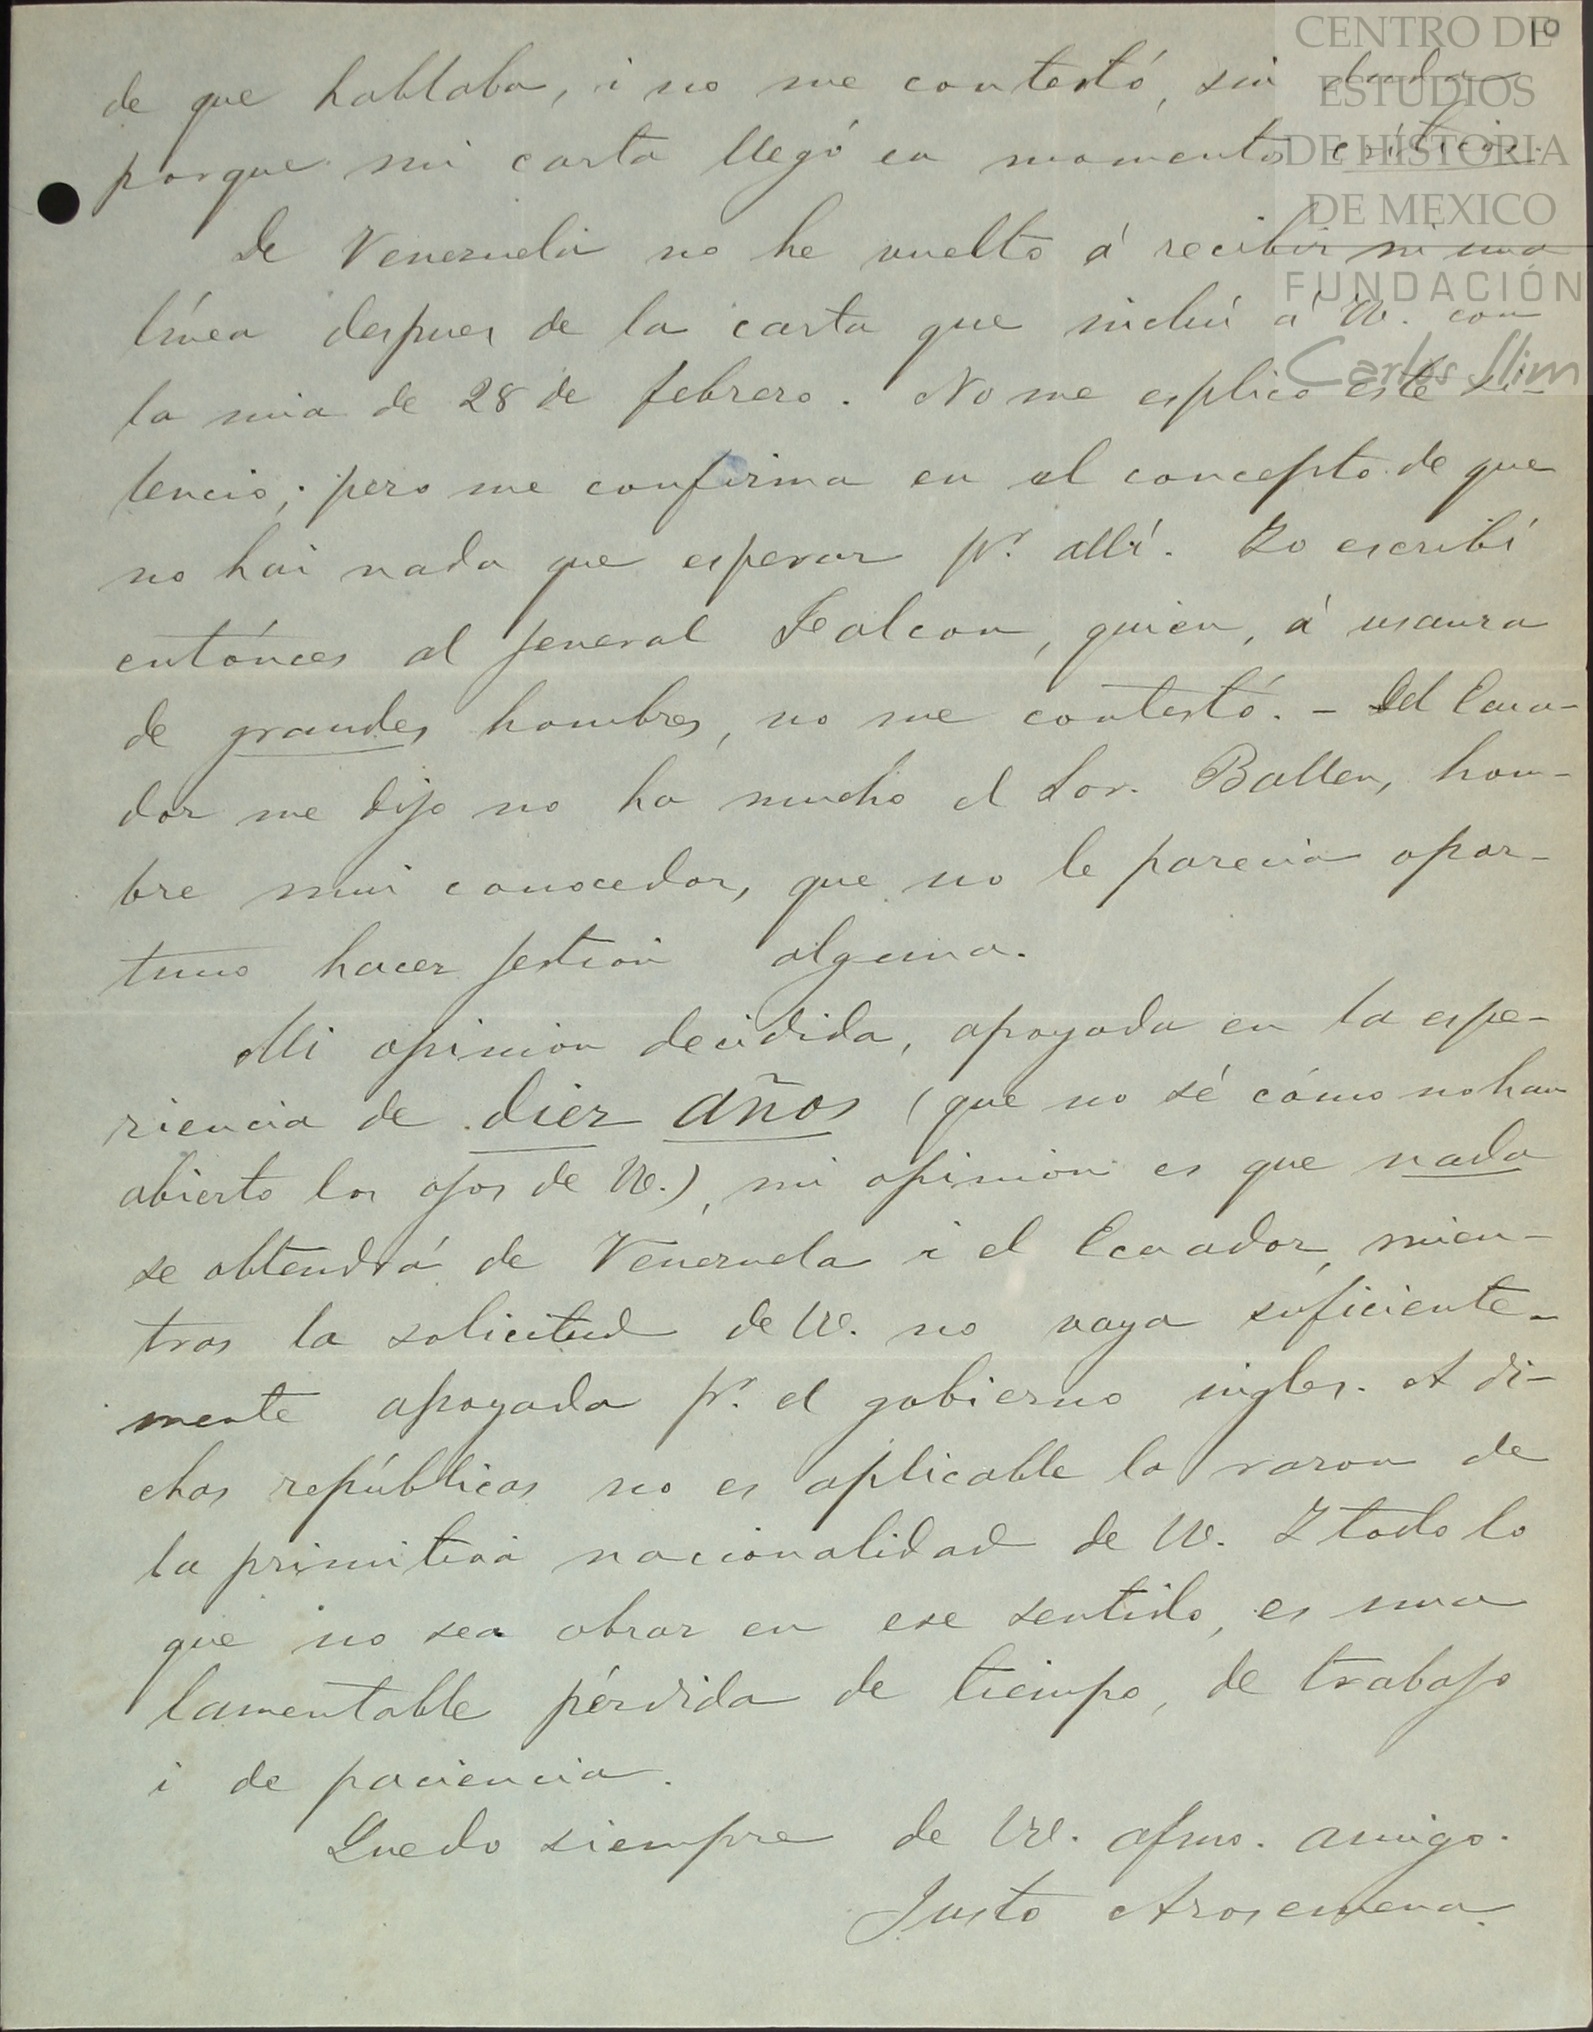 10
CENTRO DE
ESTUDIOS
DE HISTORIA
DE MEXICO
FUNDACIÓN
Carlos Slim
de que hablaba, i no me contestó, sin duda
porque mi carta llegó en momentos críticos.
De Venezuela no he vuelto á recibir ni una
línea despues de la carta que incluí á W. con
la mia de 28 de febrero. No me esplico este si-
lencio; pero me confirma en el concepto de que
no hai nada que esperar pr. allí. Yo escribí
entónces al jeneral Falcon, quien, á usanza
de grandes hombres, no me contestó. - Del Ecua-
dor me dijo no ha mucho el Sor. Ballen, hom-
bre mui conocedor, que no le parecia opor-
tuno hacer jestion alguna.
Mi opinion decidida, apoyada en la espe-
riencia de diez años (que no sé cómo no han
abierto los ojos de W.), mi opinion es que nada
se obtendrá de Venezuela i el Ecuador, mien-
tras la solicitud de W. no vaya suficiente-
mente apoyada pr. el gobierno ingles. A di-
chas repúblicas no es aplicable la razon de
la primitiva nacionalidad de W. I todo lo
que no sea obrar en ese sentido, es una
lamentable pérdida de tiempo, de trabajo
i de paciencia.
Quedo siempre de W. afmo. amigo.
Justo Arosemena.